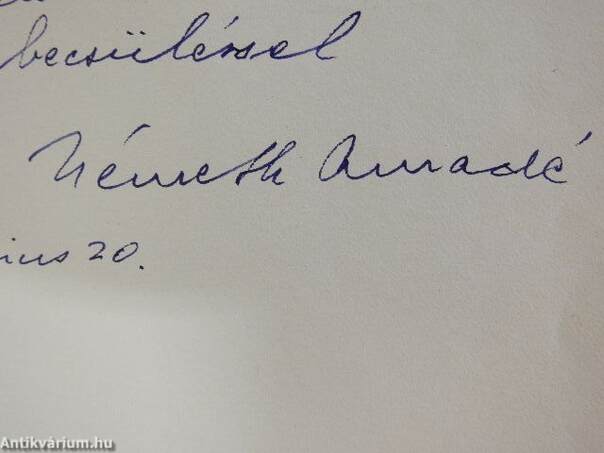 becsüléssel
Németh Amadé
ius 20.
Antikvárium.hu